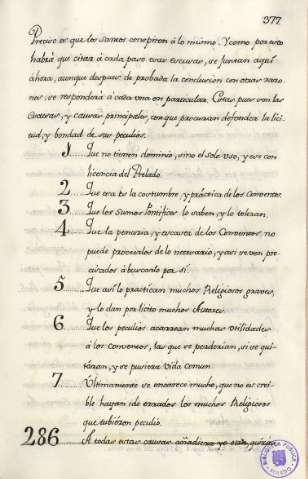 377
Preciso es que los Santos conspiren à lo mismo. Y como por esto
habrá que citar à cada paso esas escusas, se juntan aquí
ahora, aunque despues de probada la conclusion con otras razo-
nes, se responderá à cada una en particular. Estas pues son las
escusas, y causas principales, con que procuran defender la lici-
tud, y bondad de sus peculios.
1 Que no tienen dominio, sino el solo uso, y ese con
licencia del Prelado.
2 Que esta es la costumbre, y práctica de los Conventos.
3 Que los Sumos Pontífices lo saben, y lo toleran.
4 Que la penuria, y escasez de los Conventos no
puede proveerlos de lo necesario, y asi se ven pre-
cisados à buscarlo por sí.
5 Que así lo practican muchos Religiosos graves,
y lo dan por lícito muchos Autores.
6 Que los peculios acarrean muchas utilidades
à los conventos, las que se perderian, si se qui-
táran, y se pusiera vida comun.
7 Ultimamente se encarece mucho, que no es crei-
ble hayan ido errados los muchos Religiosos
que tubieron peculio.
286 A todas estas causas añadiera yo otra, quizas